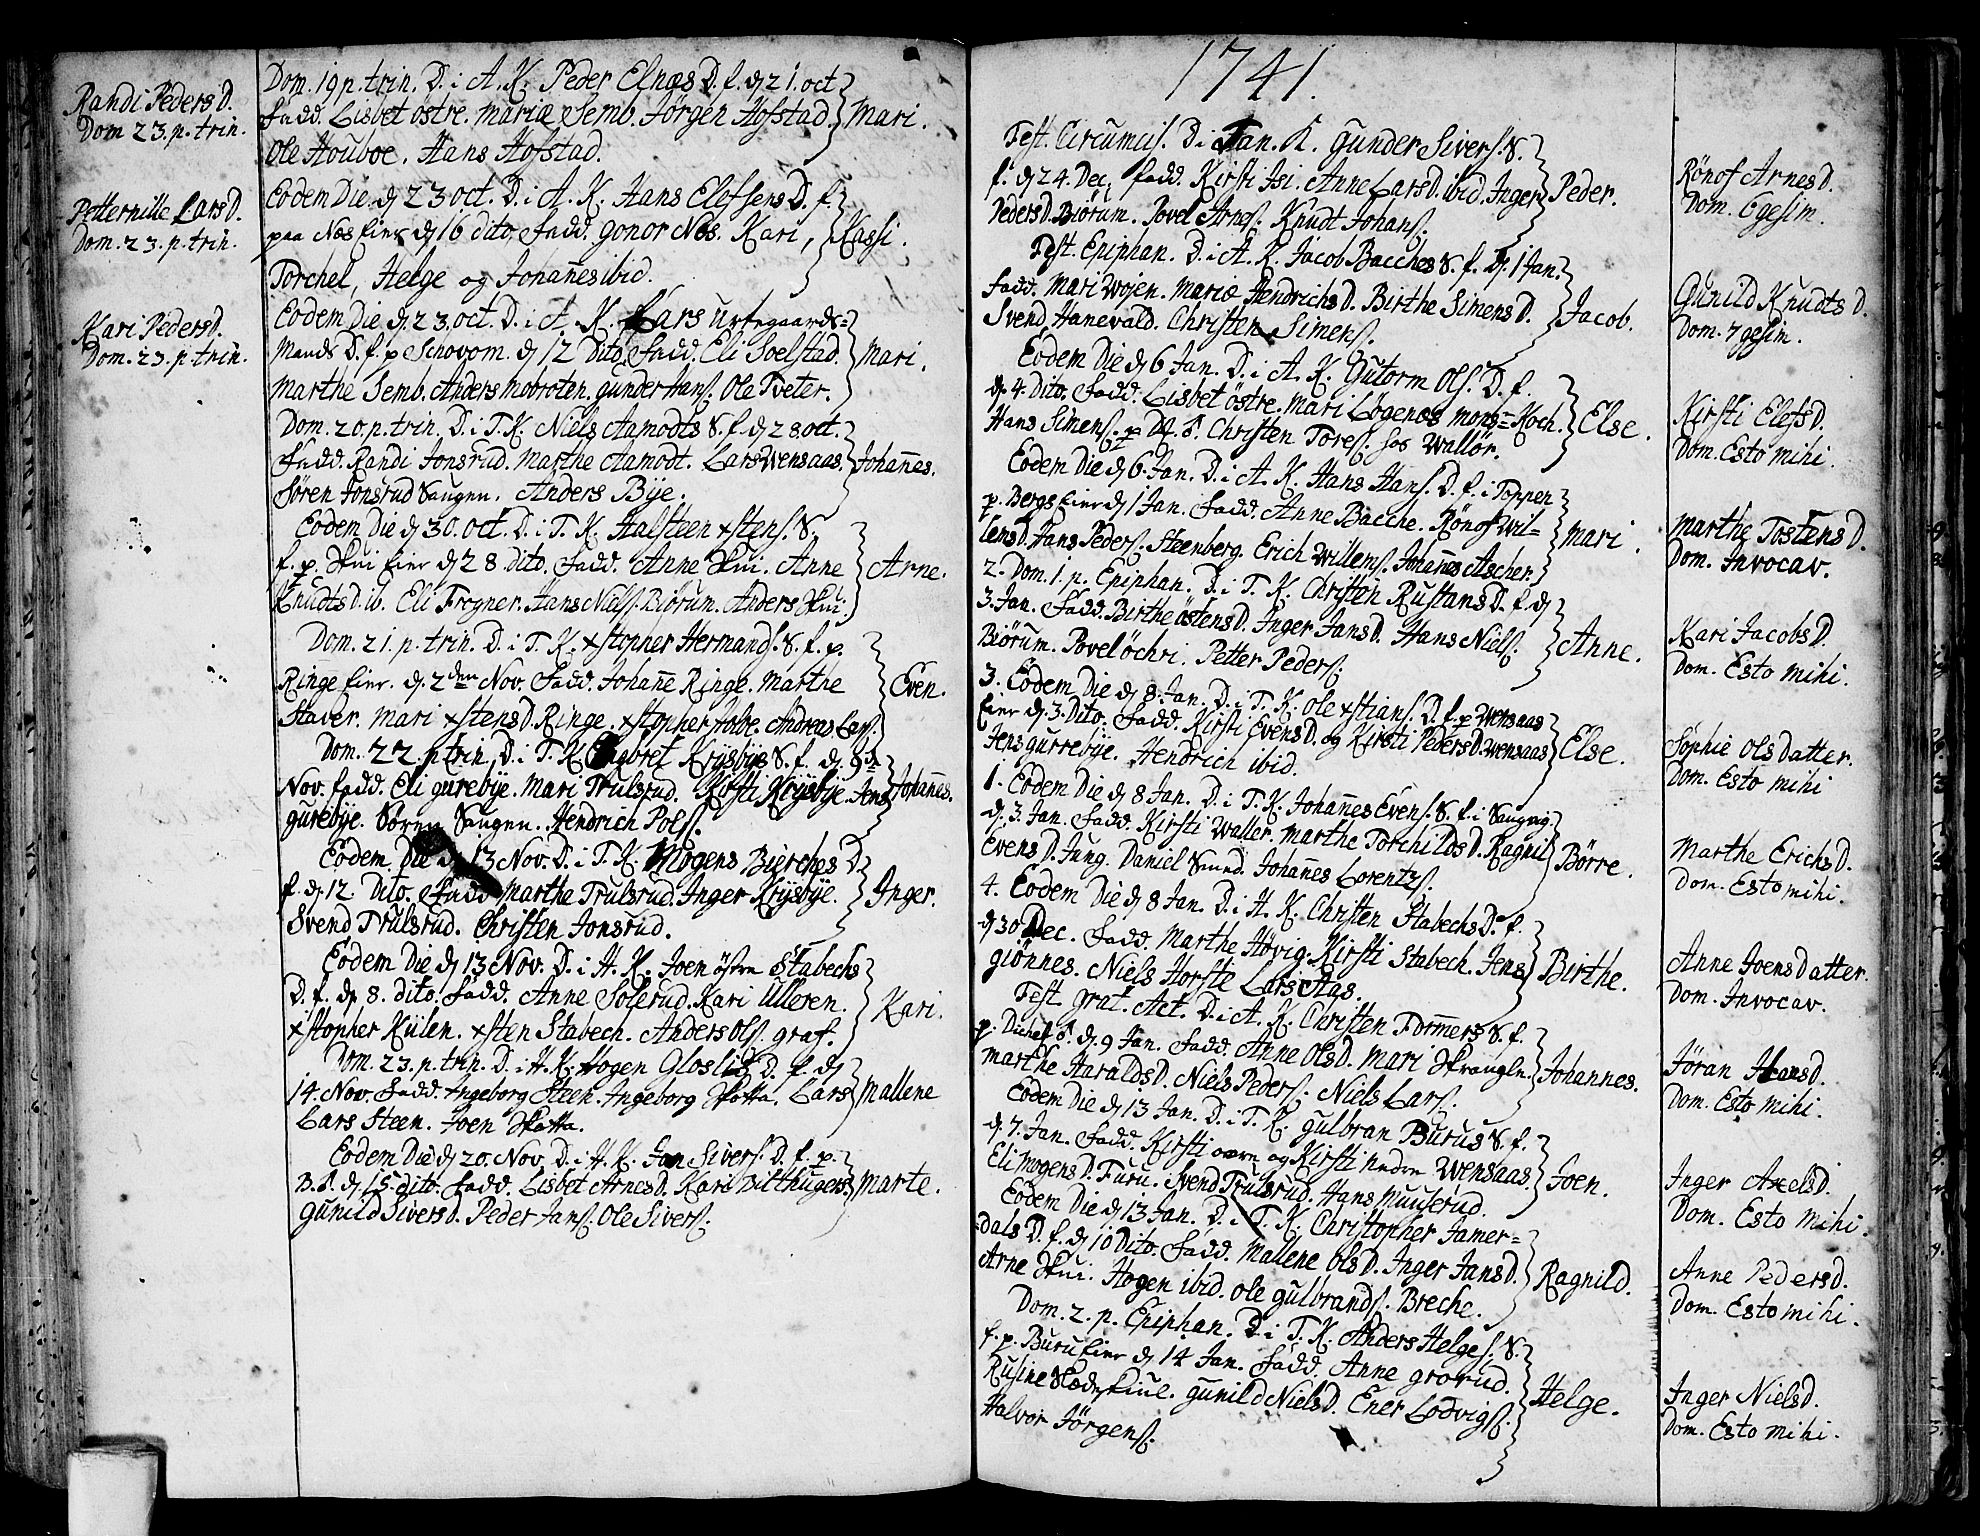 Randi Peders D.
Dom 23. p. trin.
Petternille Lars D.
Dom. 23. p. trin.
Kari Peders D.
Dom. 23. p. trin.
Dom. 19 p. trin. D. i A. K. Peder Elnæs D. f. d 21. oct
Fadd. Lisbet östre. Mariæ Semb. Jörgen Hofstad. Mari.
Ole Houboe. Hans Hofstad.
Eodem Die. d 23 oct. D. i A. K. Hans Elefsens D. f.
paa Næs Eier d 16 dito. Fadd. Gonor Næs. Kari, Kassi.
Torchel, Helge og Johanes ibid.
Eodem Die d. 23. oct. D. i A. K. Lars Urtegaards=
Mands D. f. p Schovom. d 12 Dito. Fadd. Eli Soelstad. Mari.
Marthe Semb. Anders Moeroten. Gunder Hans. Ole Tveter.
Dom. 20. p. trin. D. i T. K. Niels Aamodts S. f. d 28 oct.
Fadd. Randi Jonsrud. Marthe Aamodt. Lars Wensaas. Johanes.
Sören Jonsrud Saugen. Anders Bye.
Eodem Die d 30. oct. D. i T. K. Halsteen xstens. S.
f. p. Skui Eier d 28. dito. Fadd. Anne Skui. Anne Arne.
Knudts D. ib. Eli Frogner. Hans Niels. Biörum. Anders Skui.
Dom. 21. p. trin. D. i T. K. xstopher Hermands. S. f. p.
Ringe Eier. d. 2den Nov. Fadd. Johane Ringe. Marthe Even.
Staver. Mari xstens D. Ringe. xstopher Andreas Lars.
Dom. 22. p trin. D. i T. K. Engbret Krysbys S. f. d. 9de
Nov. Fadd. Eli Gurebye. Mari Trulsrud. Kirsti Krysbye. Jens Johanes.
Gurebye. Sören Saugen. Hendrich Pols.
Eodem Die d 13 Nov. D. i T. K. Mogens Bierches D.
f. d 12 Dito. Fadd Marthe Trulsrud. Inger Krysbye. Inger.
Svend Trulsrud. Christen Jonsrud.
Eodem Die d 13 Nov. D. i H. K. Joen östre Stabechs
D. f. d. 8. dito. Fadd. Anne Solerud. Kari Ulleren. Kari.
xstopher Kiilen. xsten Stabech. Anders Ols. graf.
Dom. 23. p. trin. D. i H. K. Hogen Gloslis D. f. d
14. Nov. Fadd. Ingeborg Steen. Ingeborg Skotta. Lars Mallene
Lars Steen. Joen Skotta.
Eodem Die d 20. Nov. D. i H. K. Jan Sivers. D. f. p.
B. S. d 15 dito. Fadd. Lisbet Arnes D. Kari Bilthugers Marte.
Gunild Sivers D. Peder Jans. Ole Sivers.
1741.
Fest. Circumcis. D. i Tan. K. Gunder Sivers. S.
f. d 24. Dec. Fadd. Kirsti Isi. Anne Lars D. ibid. Inger Peder.
Peders D. Biörum. Povel Arnes. Knudt Johans.
Fest. Epiphan. D. i A. K. Jacob Bacches S. f. d. 1 Jan.
Fadd. Mari Wojen. Mariæ Hendrichs D. Birthe Simens D. Jacob.
Svend Hanevald. Christen Simens.
Eodem Die d 6 Jan. D. i A. K. Gutorm Ols. D. f.
d. 4. Dito. Fadd. Lisbet östre. Mari Løgenæs Mons=Koch. Else.
Hans Simens. p Christen Tores. hos Wallör.
Eodem Die d 6 Jan. D. i A. K. Hans Hans. D. f. i Toppen
p. Bergs Eier d 1 Jan. Fadd. Anne Bacche. Rönof Wil=
lens D. Hans Peders. Steenberg. Erich Willems. Johanes Ascher. Mari.
2. Dom. 1. p. Epiphan. D. i T. K. Christen Rustans D. f. d
3. Jan. Fadd. Birthe östens D. Inger Jans D. Hans Niels. Anne.
Biörum. Povel öchri. Petter Peders.
3. Eodem Die d 8. Jan. D. i T. K. Ole xstians. D. f. p Wensaas
Eier d. 3. Dito. Fadd. Kirsti Evens D. og Kirsti Peders D. Wensaas Else.
Jens Gurrebye. Hendrich ibid.
1. Eodem Die d 8 Jan. D. i T. K. Johanes Evens. S. f. i Sangvig.
d. 3. Jan. Fadd. Kirsti Waller. Marthe Torchilds D. Ragnil Börre.
Evens D. Jung. Daniel Smed. Johanes Lorentz.
4. Eodem Die d 8 Jan. D. i H. K. Christen Stabechs D. f.
d 30 Dec. Fadd. Marthe Hövig. Kirsti Stabech. Jens Birthe.
giönnes. Niels Horste Lars Aas.
Fest. Grat. Act. D. i A. K. Christen Formers S. f.
p. S. d. 9 Jan. Fadd. Anne Ols D. Mari Skrangle. Johannes.
Marthe Haralds D. Niels Peders. Niels Lars.
Eodem Die d 13 Jan. D. i T. K. Gulbran Burus S. f.
d. 7. Jan. Fadd. Kirsti øvre og Kirsti Nedre Wensaas. Joen.
Eli Mogens D. Furu. Svend Trulsrud. Hans Munserud.
Eodem Die d 13 Jan. D. i T. K. Christopher Jamer=
=dals D. f. d 10 Dito. Fadd. Mallene Ols D. Inger Jans D. Ragnild.
Arne Skui. Hogen ibid. Ole Gulbrands. Breche.
Dom. 2. p. Epiphan. D. i T. K. Anders Helges. S.
f. p. Buru Eier d 14 Jan. Fadd. Anne Grorud. Helge.
Rusine Gunild Niels D. Ener Lodvigs.
Halvor Jörgens.
Rönof Arnes D.
Dom. 6gesim.
Gunild Knudts D.
Dom. 7gesim.
Kirsti Elefs D.
Dom. Esto mihi.
Marthe Tostens D.
Dom. Invocav.
Kari Jacobs D.
Dom. Esto mihi.
Sophie Ols datter.
Dom. Esto mihi
Marthe Erichs D.
Dom. Esto mihi.
Anne Joens Datter.
Dom. Invocav.
Jöran Hans D.
Dom. Esto mihi.
Inger Axels D.
Dom. Esto mihi.
Anne Peders D.
Dom. Esto mihi.
Inger Niels D.
Dom. Esto mihi.